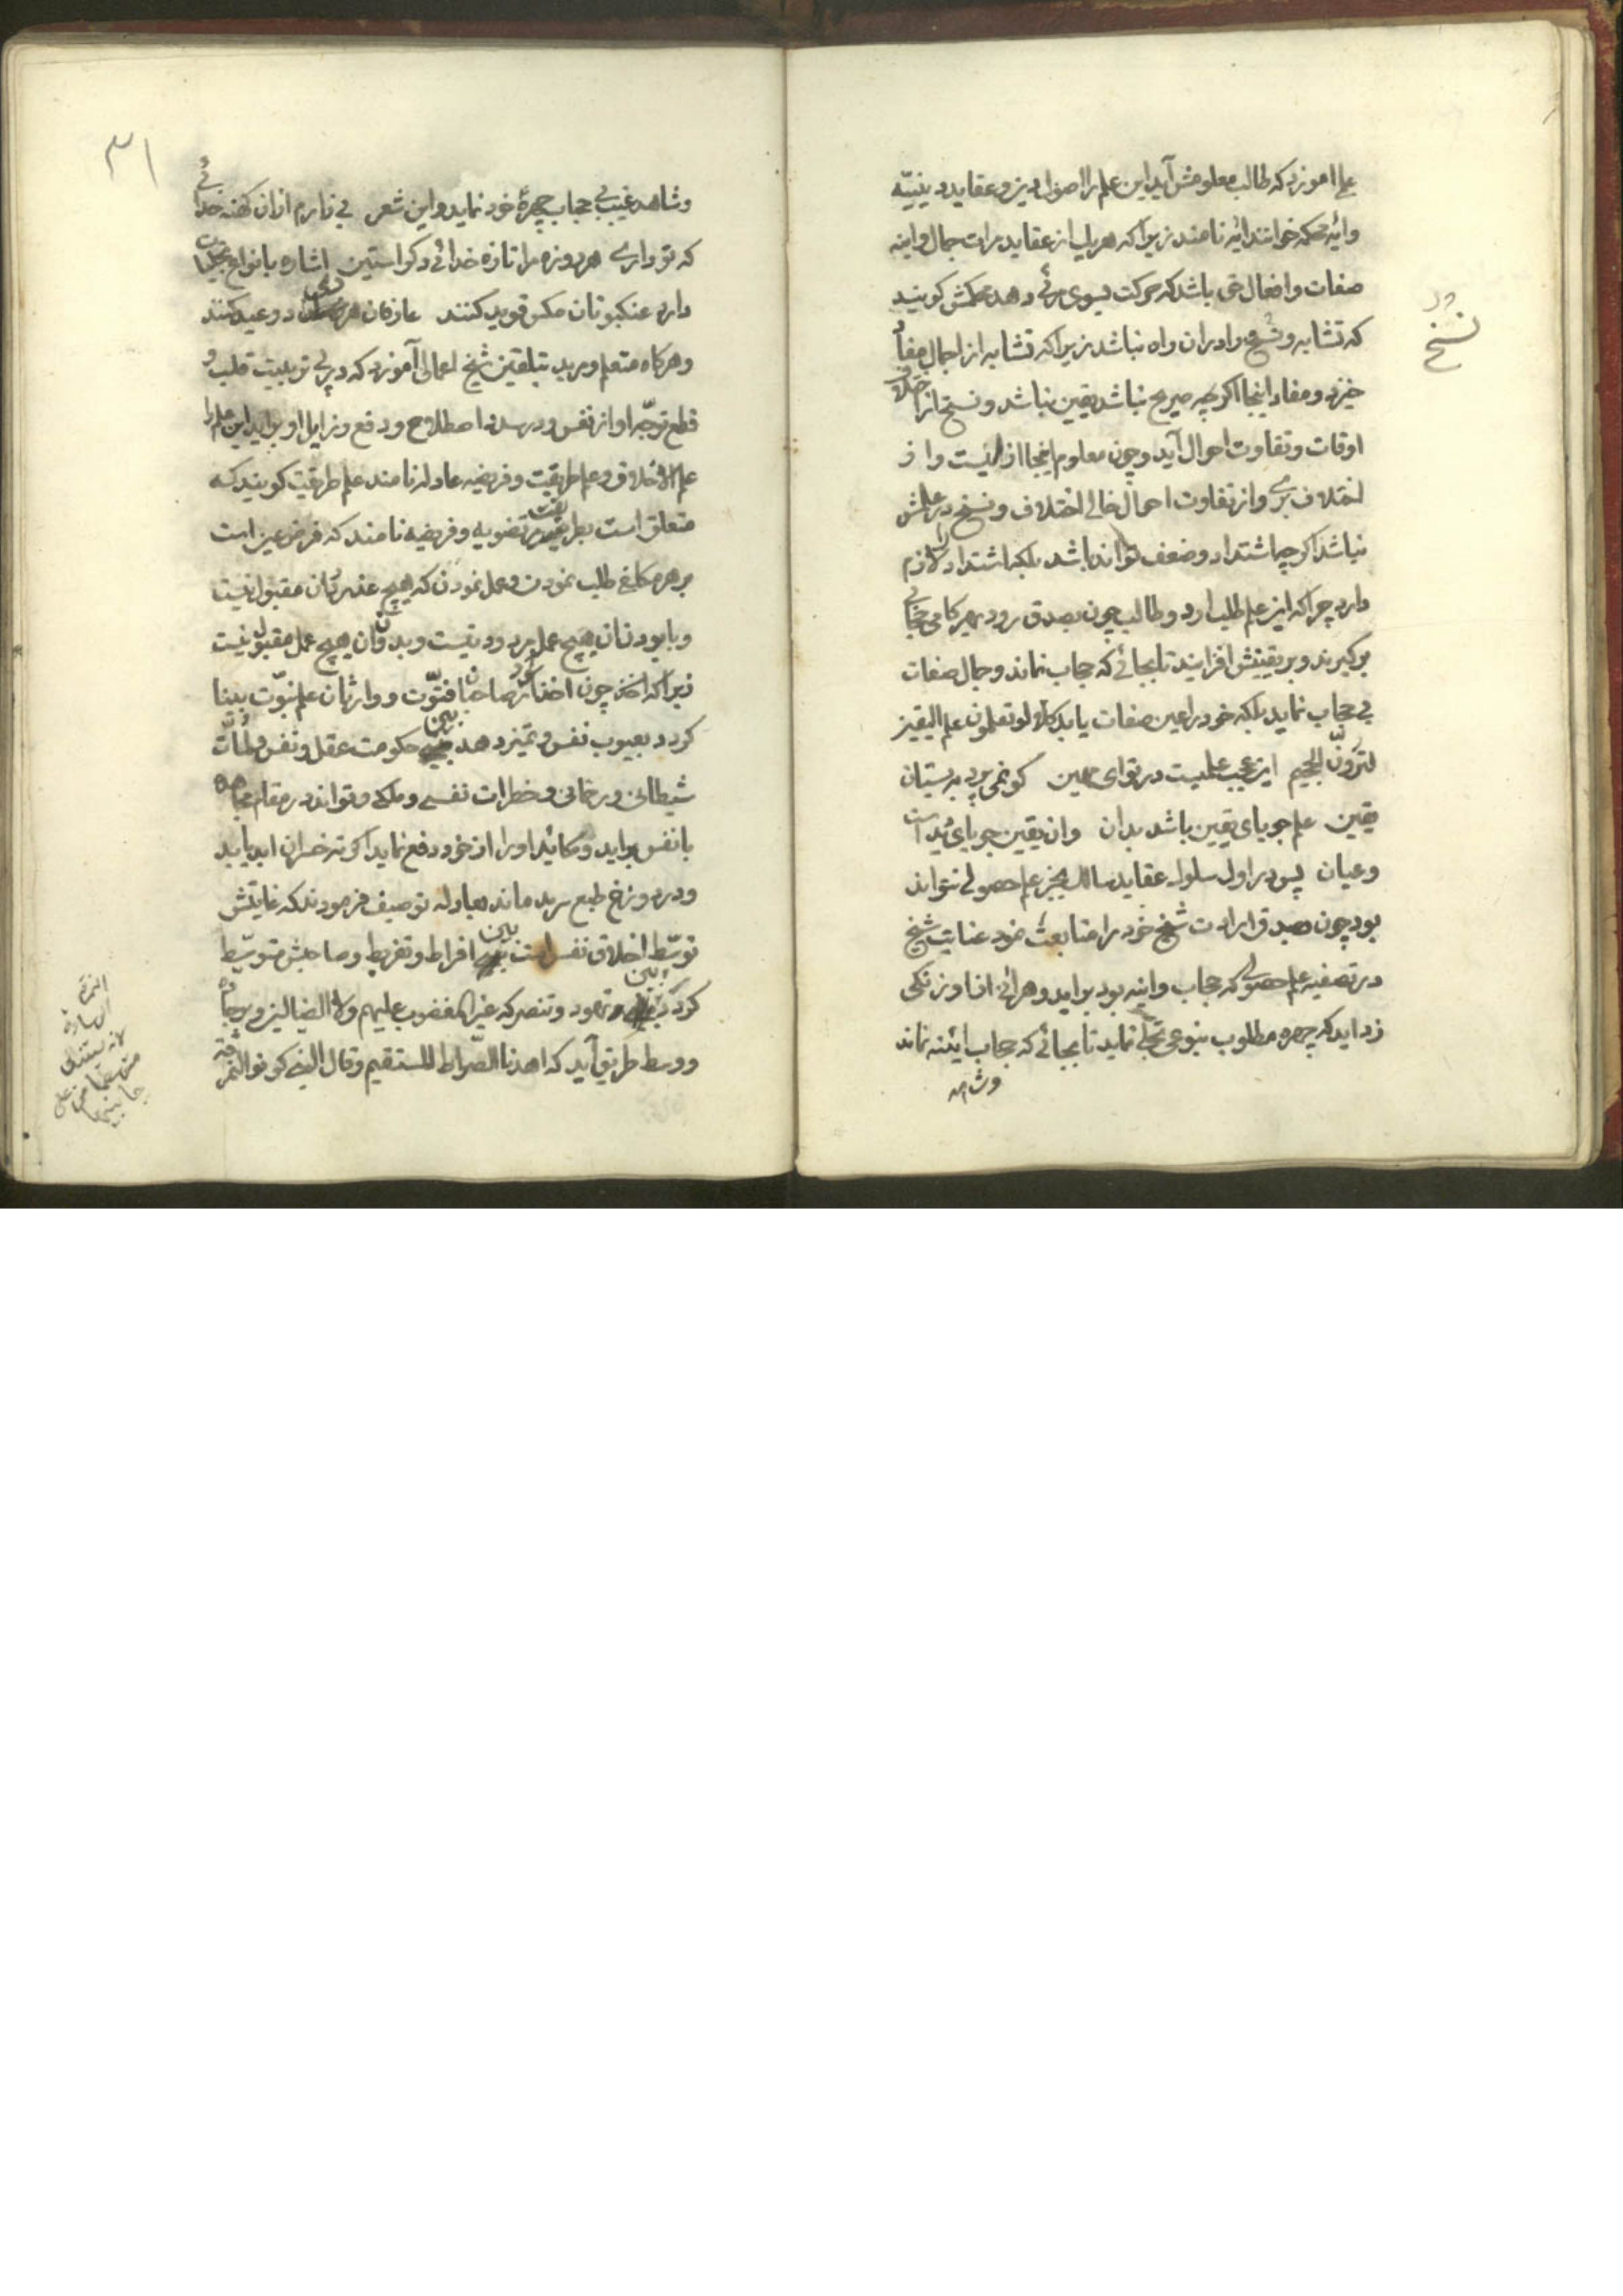 علم اموزد که طالب معلومش آید این علم را اصول دین و عقاید دینیّه
وایهٔ محکمه خوانند ایه نامند زیرا که هر یک از عقاید مرات جمال و اینه
صفات و افعال حق باشد که حرکت بسوی مرئی دهد محکمش کویند
که تشابه و نسخ را در ان راه نباشد زیرا که تشابه از اجمال مفاد
خیزد و مفاد اینجا اکر چه صریح نباشد یقین نباشد و نسخ از اختلاف
اوقات و تفاوت احوال آید و چون معلوم اینجا ازلیست و از
اختلاف بری و از تفاوت احوال خالی اختلاف و نسخ در علمش
نباشد اکر چه اشتداد و ضعف تواند باشد بلکه اشتداد را لازم
دارد چرا که این علم طلب ارد و طالب چون بصدق رود بهر کامی حجابی
برکیرند و بر یقینش افزایند تا بجائی که حجاب نماند و جمال صفات
بی حجاب نماید بلکه خود را عین صفات یابد کلا لو تعلمون علم الیقین
لترونّ الجحیم این عجب علمیست در توای مهین کو نمی پرد به بستان
یقین علم جویای یقین باشد بدان وان یقین جویای دید است
وعیان پس در اول سلوک عقاید سالک بجز علم حصولی نتواند
بود چون بصدق ارادت شیخ خود را متابعت نمود عنایت شیخ
در تصفیه علم حصولی که حجاب واینه بود براید و هر آنی از او زنکی
زداید که چهره مطلوب بنوعی تجلی نماید تا بجائی که حجاب ایننه نماند
وشاهد
در
نسخ
۳۱
وشاهد غیب بی حجاب چهرهٔ خود نماید و این شعر بی زارم از ان کهنه خدائی
که تو داری هر روز مرا تازه خدائی دکر استین اشاره بانواع تجلیات
دارد عنکبوتان مکس قدید کنند عارفان هر دمی دو عید کنند
وهر کاه متعلم و مرید بتلقین شیخ اعمالی آموزد که در پی تربیت قلب و
قطع توجّه او از نفس و در صدد اصطلاح و دفع رزایل او براید این علم را
علم الاخلاق و علم طریقت و فریضه عادله نامند علم طریقت کویند که
متعلق است بطریقت مرتضویه و فریضه نامند که فرض عین است
بر هر مکلفی طلب نمودن و عمل نمودن که هیچ عذر بان مقبول نیست
وبا بودن ان هیچ عمل مردود نیست و بدون ان هیچ عمل مقبول نیست
زیرا که اخذ چون اخذ کرد صاحبان فتوّت و وارثان علم نبوّت بینا
کردد بعیوب نفس و تمیز دهد بین حکومت عقل و نفس و لمّات
شیطانی و رحمانی و خطرات نفسی و ملکی و تواند در مقام مجاهده
با نفس براید و مکائد او را از خود دفع نماید اکر نه خسران ابد یابد
ودر دوزخ طبع سرمد ماند بعادله توصیف فرمودند که غایتش
توسّط اخلاق نفس است بین افراط و تفریط و صاحبش متوسّط
کردد بین تهود و تنصر که غیر المغضوب علیهم ولا الضالین و بر جاده
ووسط طریق آید که اهدنا الصّراط المستقیم وقال النبی کونوا النمرقة
النمرقة
الوسادة